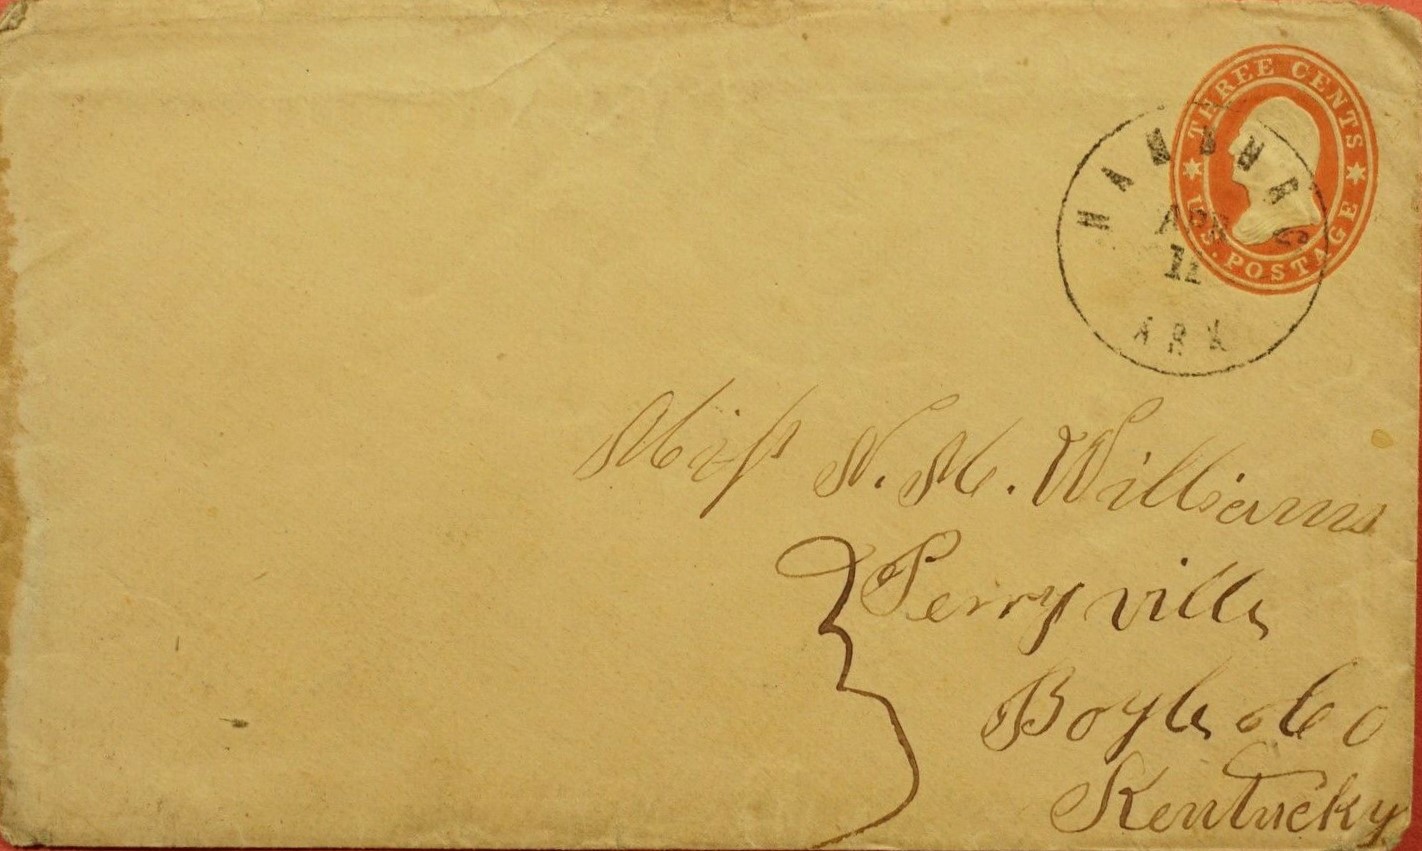 THREE CENTS
U.S. POSTAGE
HAMBURG
APR
11
ARK
Miss N. M. Williams
Perryville
Boyle Co
Kentucky